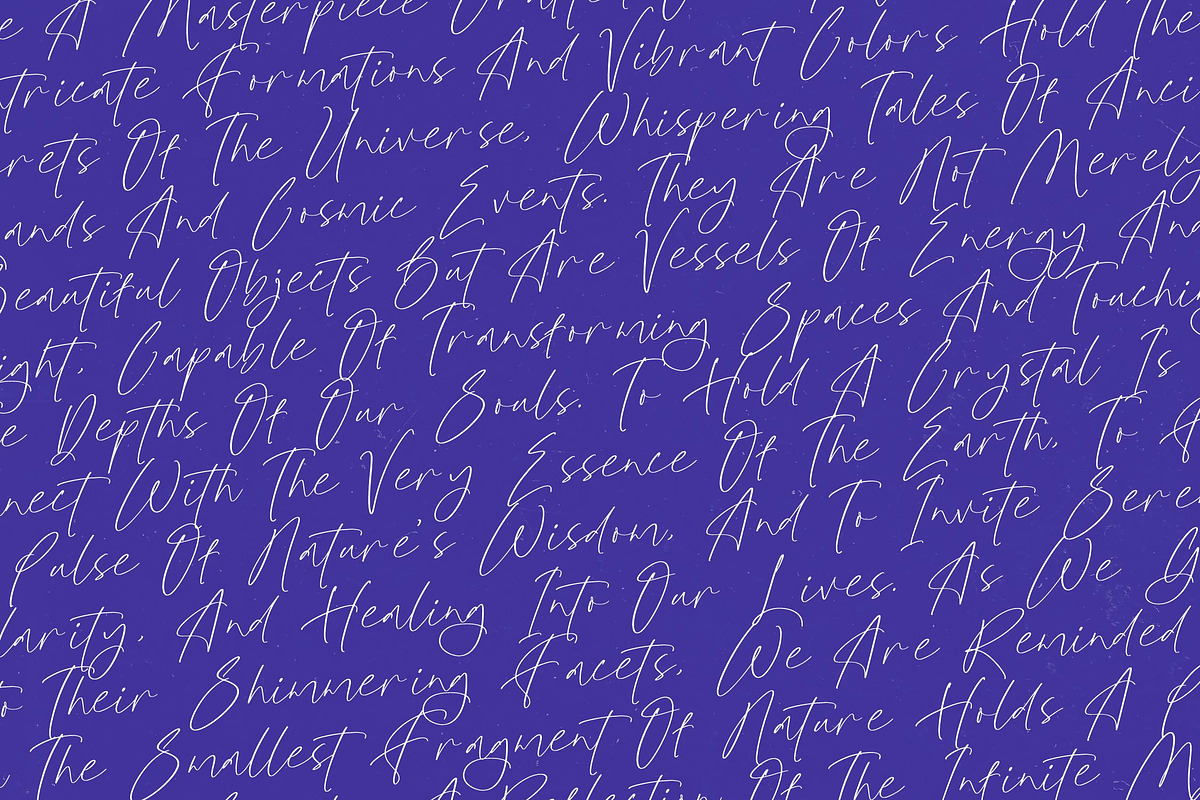 A Masterpiece
Formations And Vibrant Colors Hold The
Of The Universe, Whispering Tales Of
And Cosmic Events. They Are Not Merely
Beautiful Objects But Are Vessels Of Energy And
Capable Of Transforming Spaces And
Depths Of Our Souls. To Hold A Crystal Is
With The Very Essence Of The Earth, To
Pulse Of Nature's Wisdom, And To Invite
And Healing Into Our Lives. As We
Their Shimmering Facets, We Are Reminded
The Smallest Fragment Of Nature Holds A
A Reflection Of The Infinite